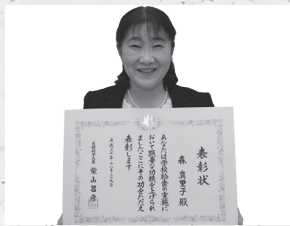 表彰状
森 真里子 殿
あなたは学校給食の実施に
おいて顕著な功績を上げられ
ましたここにその功をたたえ
表彰します
平成三十年十一月二十九日
文部科学大臣 柴山昌彦